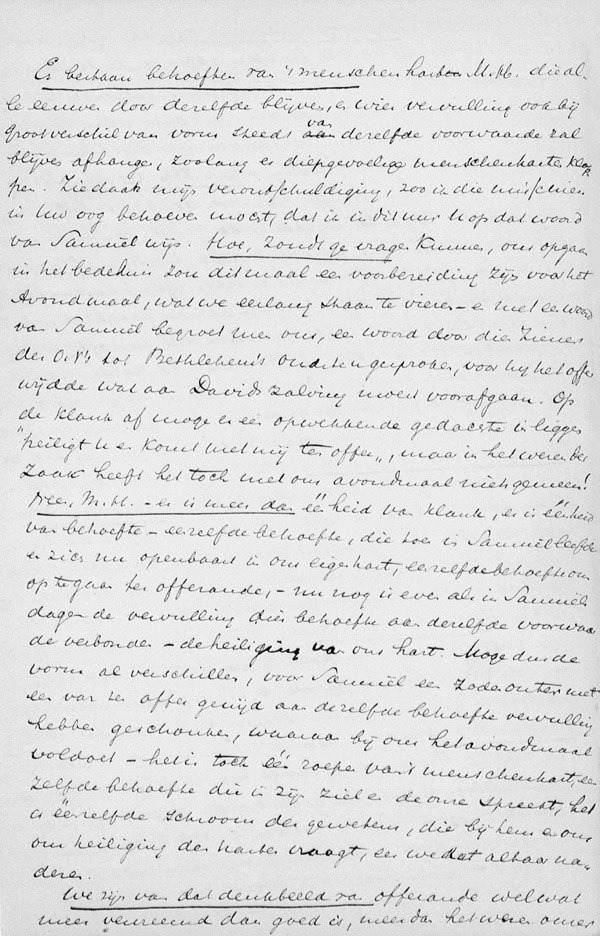 Er bestaan behoeften van 't menschenhart M.H. die al-
le eeuwen door dezelfde blijven, en wier vervulling ook bij
groot verschil van vorm steeds van dezelfde voorwaarde zal
blijven afhangen, zoolang er diepgevoelige menschenharten klop
pen. Ziedaar mijn verontschuldiging, zoo ik die misschien
in uw oog behoeven mocht, dat ik in dit uur U op dat woord
van Samuël wijs. Hoe, zoudt ge vragen kunnen, ons opgaan
in het bedehuis zou ditmaal een voorbereiding zijn voor het
Avondmaal, wat we eerlang staan te vieren – en met een woord
van Samuël begroet men ons, een woord door dien Ziener
des O.V.'s tot Bethlehem's oudsten gesproken, voor hij het offer
wijdde wat aan Davids zalving moest voorafgaan. Op
de klank af moge er een opwekkende gedachte in liggen
"heiligt u en komt met mij ten offer", maar in het wezen der
zaak heeft het toch met ons avondmaal niets gemeen!
Neen, M.H. – er is meer dan éénheid van klank, er is éénheid
van behoefte – eenzelfde behoefte, die toen in Samuël leefde
en zich nu openbaart in ons eigen hart, eenzelfde behoefte om
op te gaan ter offerande, – nu nog is even als in Samuëls
dagen de vervulling dier behoefte aan dezelfde voorwaar
de verbonden – de heiliging van ons hart. Moge dus de
vorm al verschillen, voor Samuël een rode
een var ten offer gewijd aan dezelfde behoefte vervulling
hebben geschonken, waaraan bij ons het avondmaal
voldoet – het is toch één roepen van 't menschenhart, een
zelfde behoefte die in zijn ziel en de onze spreekt, het
is éénzelfde schroom des gewetens, die bij hem en ons
om heiliging des harten vraagt, eer we dat altaar na-
deren.
We zijn van dat denkbeeld van offerande wel wat
meer vervreemd dan goed is, meer dan het wezen onzer